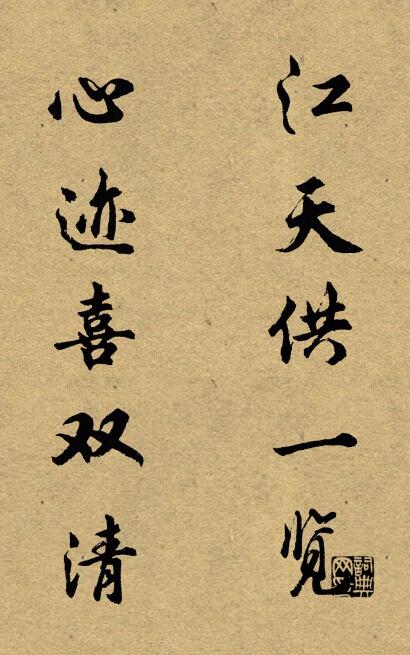 江天供一览
心迹喜双清
詞典网